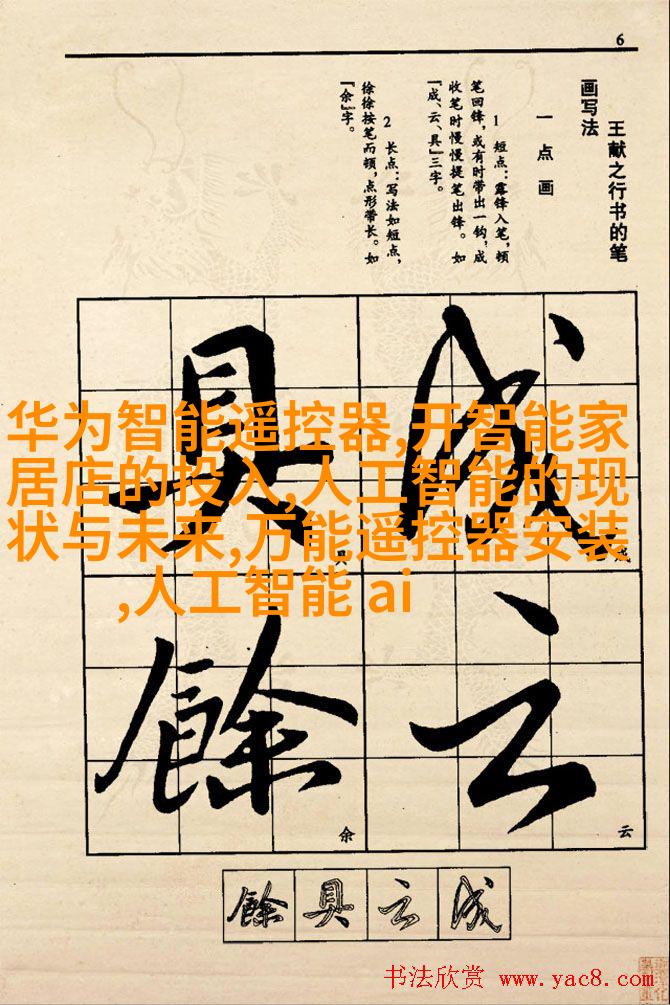 6
王献之行书的笔
画写法
一点画
1 短点:露锋入笔,顿
笔回锋,或有时带出一钩,成
收笔时慢慢提笔出锋。如
“成、云、具”三字。
2 长点:写法如短点,
徐徐按笔而顿,点形带长。如
“余”字。
成
具
云
餘
成
具
云
余
华为智能遥控器,开智能家
居店的投入,人工智能的现
状与未来,万能遥控器安装
,人工智能 ai
餘具云成
书法欣赏 www.yac8.com